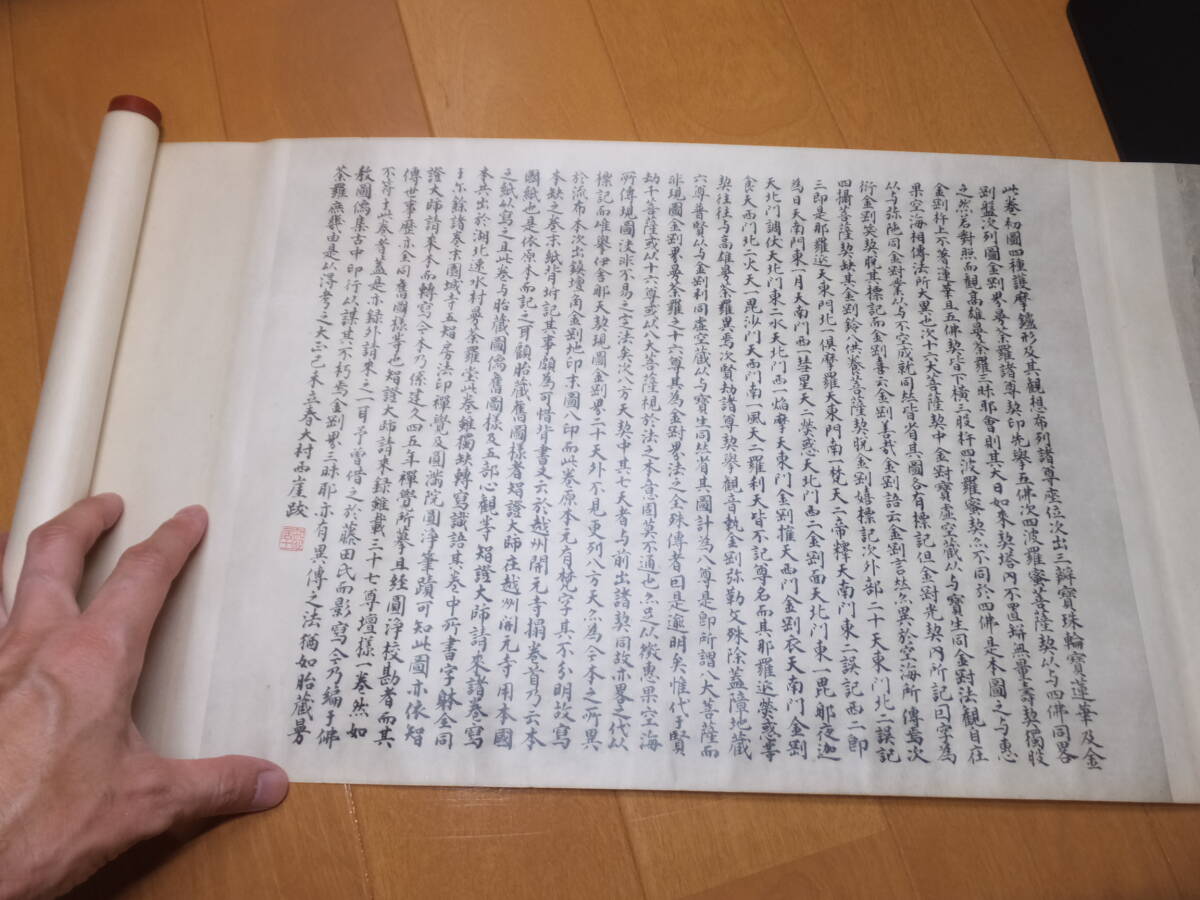 此卷初圖四種護摩鑪形及其觀想布列諸尊座位次出三辨寶珠輪寶蓮華及金
剛盤次列圖金剛界曼荼羅諸尊契印先擧五佛次四波羅蜜菩薩契以与四佛同畧
之然若對照而觀高雄曼荼羅三昧耶會則其大日如來契塔內不置無量壽契獨股
金剛杵上不著蓮華且五佛契皆下橫三股杵四波羅蜜契亦不同於四佛是本圖之与惠
果空海相傳法所大異也次十六大菩薩契中金剛寶虛空藏以与寶生同金剛法觀自在
以与弥陁同金剛業以与不空成就同然皆省其圖各有標記但金剛光契內所記因字為
衍金剛笑契脫其標記而金剛喜云金剛善哉金剛語云金剛言然亦異於空海所傳焉次
四攝菩薩契缺其金剛鈴八供養菩薩契脫金剛嬉標記次外部二十天東門北二誤記
三即是那羅延天東門北一俱摩羅天東門南一梵天二帝釋天南門東二誤記西二即
為日天南門東一月天南門西一彗星天二熒惑天北門西二金剛面天北門東一毘那夜迦
天北門調伏天北門東二水天北門西一焔摩天東門金剛摧天西門金剛衣天南門金剛
食天西門北二火天一毘沙門天西門南一風天二羅利天皆不記尊名而其那羅延熒惑等
契往往与高雄曼荼羅異焉次賢劫諸尊契擧觀音執金剛弥勒文殊除蓋障地藏
六尊普賢以与金剛利同虛空藏以与寶生同然省其圖計為八尊是即所謂八大菩薩而
非現圖金剛界曼荼羅之十六尊其為金剛界法之全殊傳者因是逾明矣惟代于賢
劫千菩薩或以十六尊或以八大菩薩視於法之本意固莫不通也亦足以徵惠果空海
所傳現圖決非不易之定法矣次八方天契中其七天者与前出諸契同故亦畧之代以
標記而唯擧伊舍那天契現圖金剛界二十天外不見更列八方天亦為今本之所異
於流布本次出鎮壇角金剛地印末圖八印而此卷原本元有梵字其不分明故寫
本缺之卷末紙背所記其事願為可惜背書又云於越州開元寺搨卷首乃云本
國紙也是依原本而記之耳顧胎藏舊圖樣者智證大師在越州開元寺用本國
之紙以寫之且此卷与胎藏圖像舊圖樣及五部心觀等智證大師請來諸卷寫
本共出於湖北速水村曼荼羅堂此卷雖獨缺轉寫識語其卷中所書字躰全同
于尒餘諸卷末園城寺五智房法印禪覺及圓滿院圓淨筆蹟可知此圖亦依智
證大師請來本而轉寫今本乃係建久四五年禪覺所摹且經圓淨校勘者而其
傳世事歷亦全同舊圖樣等也智證大師請來録雖載三十七尊壇樣一卷然如
不符于此卷者蓋是亦録外請來之一耳予曾借之於藤田氏而影寫今乃編于佛
敎圖像集古中印行以謀其不朽焉金剛界三昧耶亦有異傳之法猶如胎藏曼
荼羅庶幾由是以得考之大正己未立春大村西崖跋